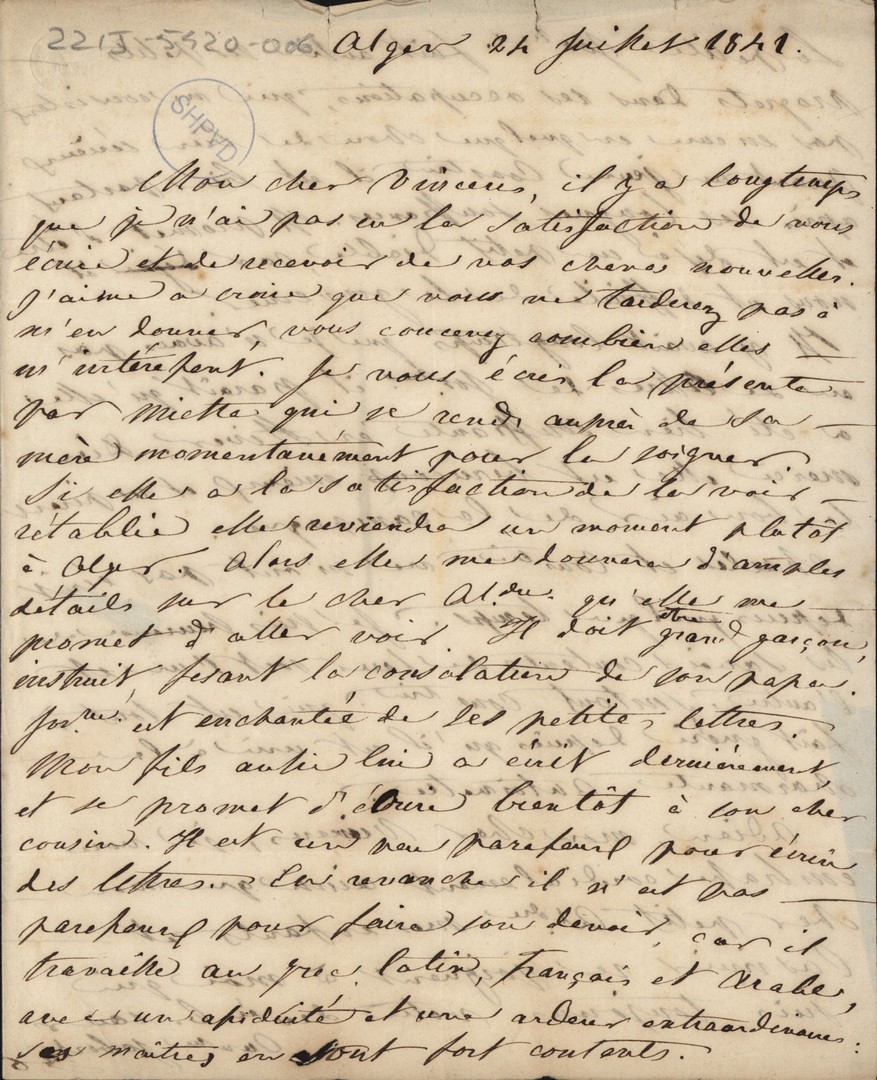 22II-5420-006. Alger 24 Juillet 1841.
SHPVD
Mon cher Vincens, il y a longtemps
que je n'ai pas eu la satisfaction de vous
écrire et de recevoir de vos cheres nouvelles.
J'aime a croire que vous ne tarderez pas à
m'en donner, vous concevez combien elles
m'intéressent. Je vous écris la présente
par Miette qui se rend auprès de sa
mère momentanément pour la soigner
Si elle a la satisfaction de la voir
rétablie elle reviendra un moment plutôt
à Alger. Alors elle me donnera d'amples
détails sur le cher Al.dre qu'elle me
promet d'aller voir. Il doit être grand garçon,
instruit, fesant la consolation de son papa.
est enchantée de ses petites lettres.
Mon fils aussi lui a écrit dernièrement,
et se promet d'écrire bientôt à son cher
cousin. Il est un peu paresseux pour écrire
des lettres. En revanche il n'est pas
paresseux pour faire son devoir, car il
travaille au grec, latin, français et arabe,
avec un assiduité et une ardeur extraordinaires:
ses maîtres en sont fort contents.